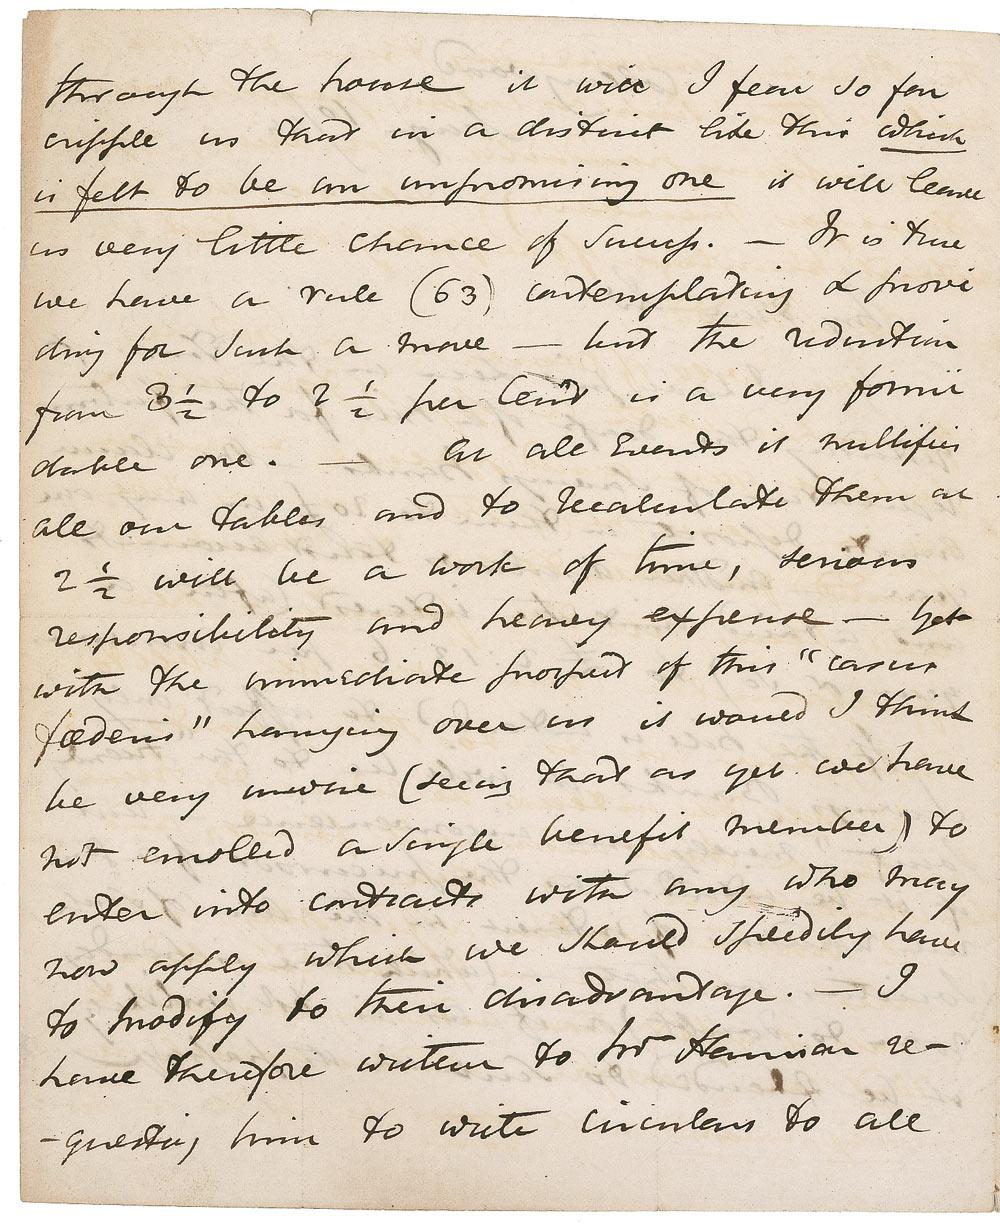 through the house it will I fear so far
cripple us that in a district like this which
is felt to be an unpromising one it will leave
us very little chance of success. — It is true
we have a rule (63) contemplating & provi
ding for such a move — but the reduction
from 3½ to 2½ per Cent is a very formi
dable one. — At all Events it nullifies
all our tables and to recalculate them at
2½ will be a work of time, serious
responsibility and heavy expense — Yet
with the immediate prospect of this "casus
fœderis" hanging over us it would I think
be very unwise (seeing that as yet we have
not enrolled a single benefit member) to
enter into contracts with any who may
now apply which we should speedily have
to modify to their disadvantage. — I
have therefore written to Mr re-
-questing him to write circulars to all